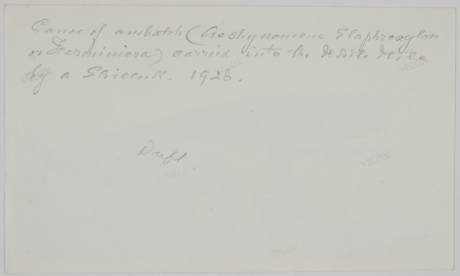 Canoe of ambatch (Aeshynomene Elaphroxylon
or Herminiera) carried into the White Nile
by a Shilluk. 1926.